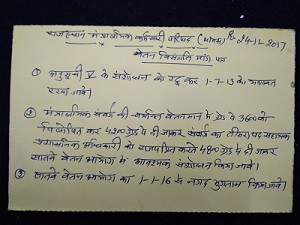 राजस्थान मंत्रालयिक कर्मचारी परिषद् दि. 24-11-2017
वेतन विसंगति मांग पत्र
① अनुसूची V के संशोधन को रद्द कर 1-7-13 के
रखा जावे।
② मंत्रालयिक संवर्ग की वर्तमान वेतनमान में ग्रेड पे 3600 को
विलोपित कर 4200 ग्रेड पे दी जाकर संवर्ग का तीसरा पद सहायक
प्रशासनिक अधिकारी को राजपत्रित करते 4800 ग्रेड पे दी जाकर
सातवें वेतन आयोग में संशोधन किया जावे।
③ सातवें वेतन आयोग का 1-1-16 से नगद भुगतान किया जावे।